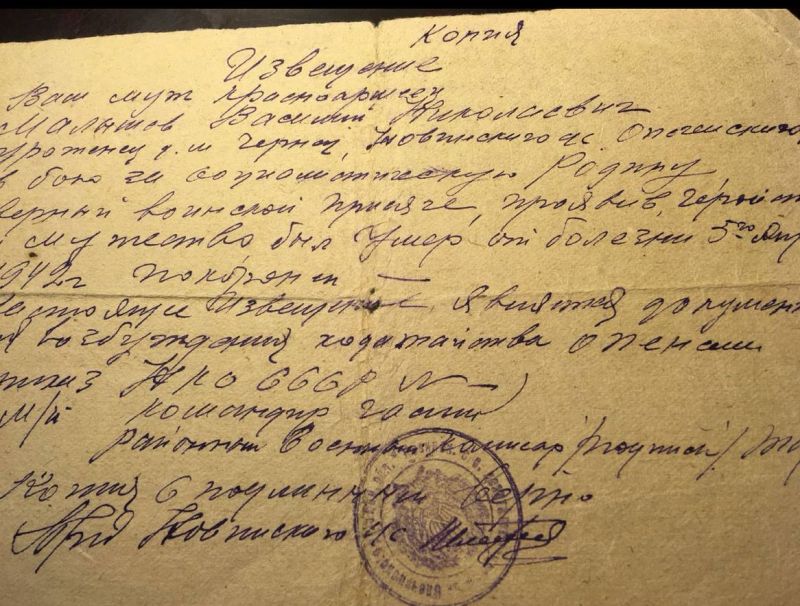 Копия
Извещение
Ваш муж красноармеец
Малышов Василий Николаевич
уроженец д. м Чернец, Новинского с. Опеченского
в бою за социалистическую Родину,
верный воинской присяге, проявив герой
и мужество был Умер от болезни 5го
1942г похоронен —
настояще Извещение является докумен
я возбуждения ходатайства о пенсии
приказ НКО СССР N —
м/п командир части
районный Военный комисар
Копия с подлинным верно
Новинского с/с